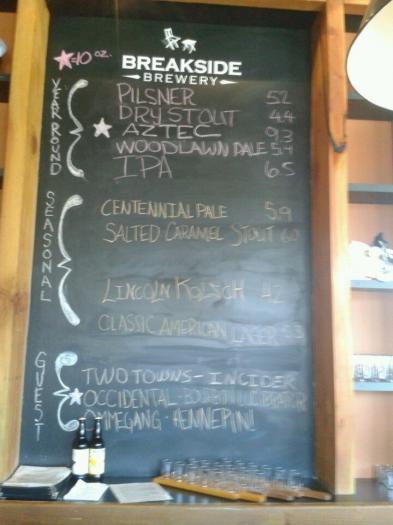 ★=10 oz.
BREAKSIDE
BREWERY
YEAR ROUND
PILSNER 5.2
DRY STOUT 4.4
★ AZTEC 9.3
WOODLAWN PALE 5.4
IPA 6.5
SEASONAL
CENTENNIAL PALE 5.9
SALTED CARAMEL STOUT 6.0
LINCOLN KOLSCH 4.2
CLASSIC AMERICAN LAGER 5.3
GUEST
TWO TOWNS - INCIDER
★ OCCIDENTAL - BOURBON LUCUBRATOR
OMMEGANG - HENNEPIN!